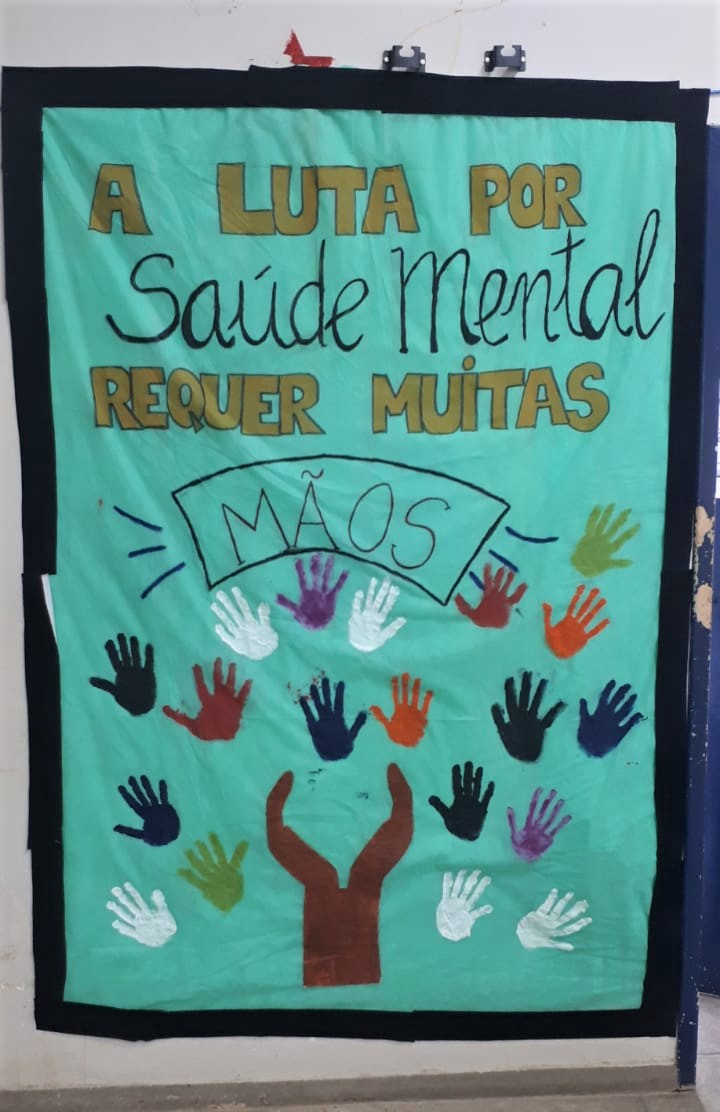 A LUTA POR
Saúde Mental
REQUER MUITAS
MÃOS